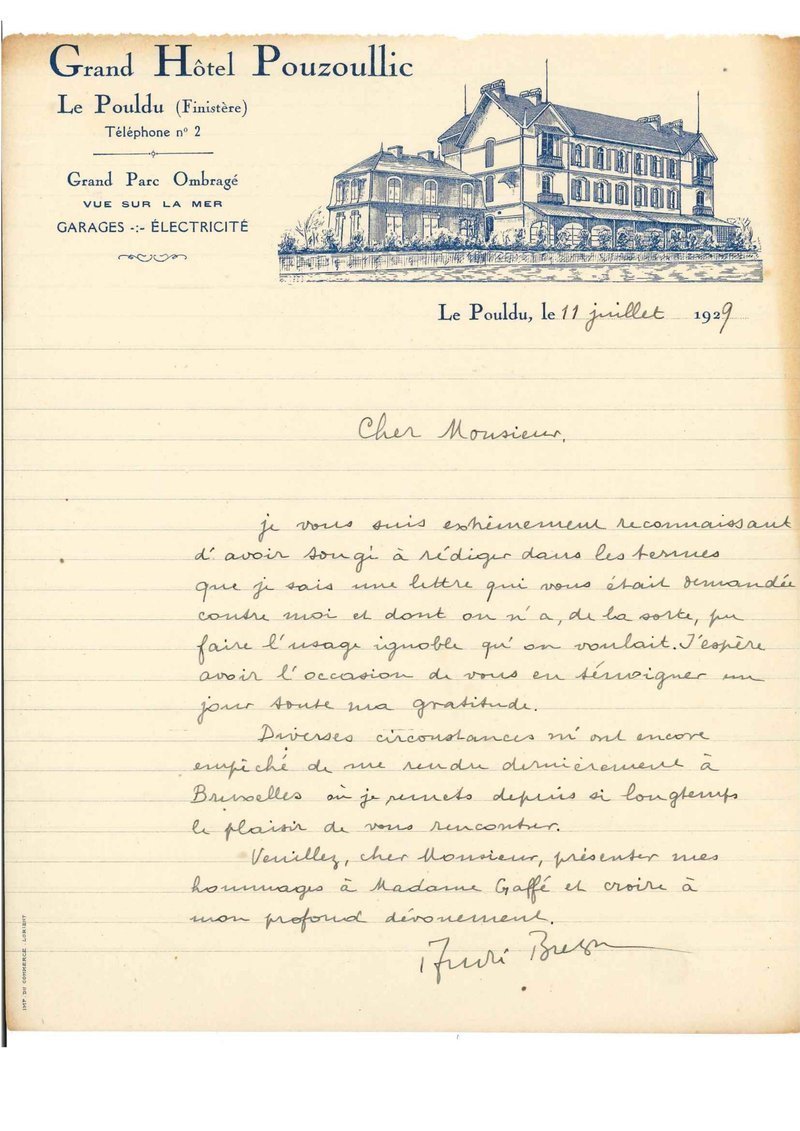 Grand Hôtel Pouzoullic
Le Pouldu (Finistère)
Téléphone nº 2
Grand Parc Ombragé
VUE SUR LA MER
GARAGES -:- ÉLECTRICITÉ
Le Pouldu, le 11 juillet 1929
Cher Monsieur,
je vous suis extrêmement reconnaissant
d'avoir songé à rédiger dans les termes
que je sais une lettre qui vous était demandée
contre moi et dont on n'a, de la sorte, pu
faire l'usage ignoble qu'on voulait. J'espère
avoir l'occasion de vous en témoigner un
jour toute ma gratitude.
Diverses circonstances m'ont encore
empêché de me rendre dernièrement à
Bruxelles où je remets depuis si longtemps
le plaisir de vous rencontrer.
Veuillez, cher Monsieur, présenter mes
hommages à Madame Gaffé et croire à
mon profond dévouement.
André Breton
IMP. DU COMMERCE - LORIENT